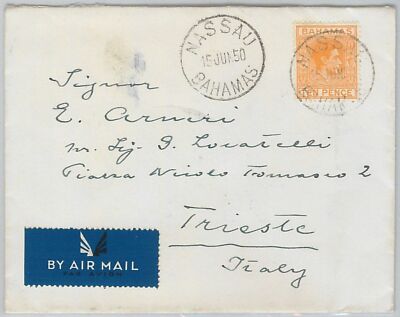 NASSAU
15 JUN 50
BAHAMAS
BAHAMAS
TEN PENCE
NASSAU
Signor
E. Arneri
Sig. D. Locatelli
Piazza Nicolo Tomaseo 2
Trieste
Italy
BY AIR MAIL
PAR AVION